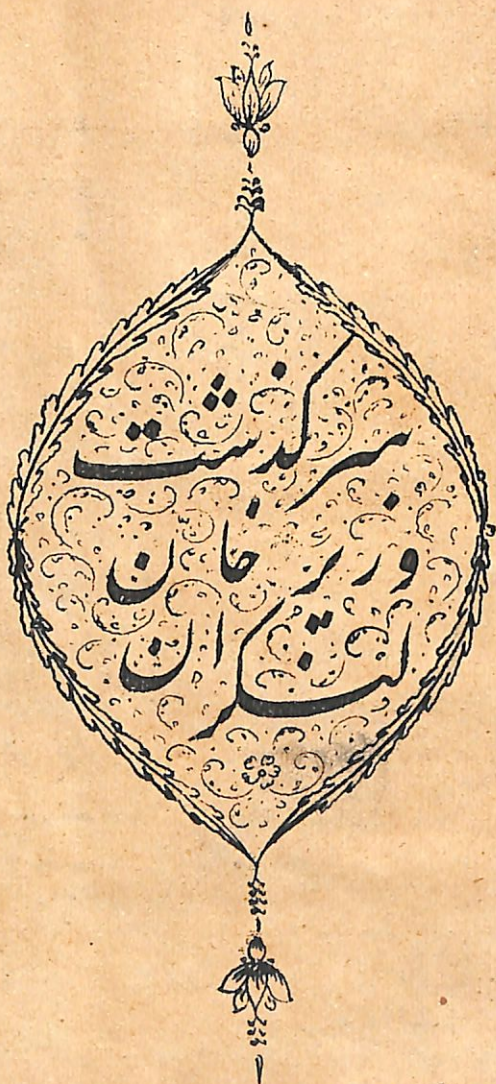 سرکذشت
وزیر خان
لنکران